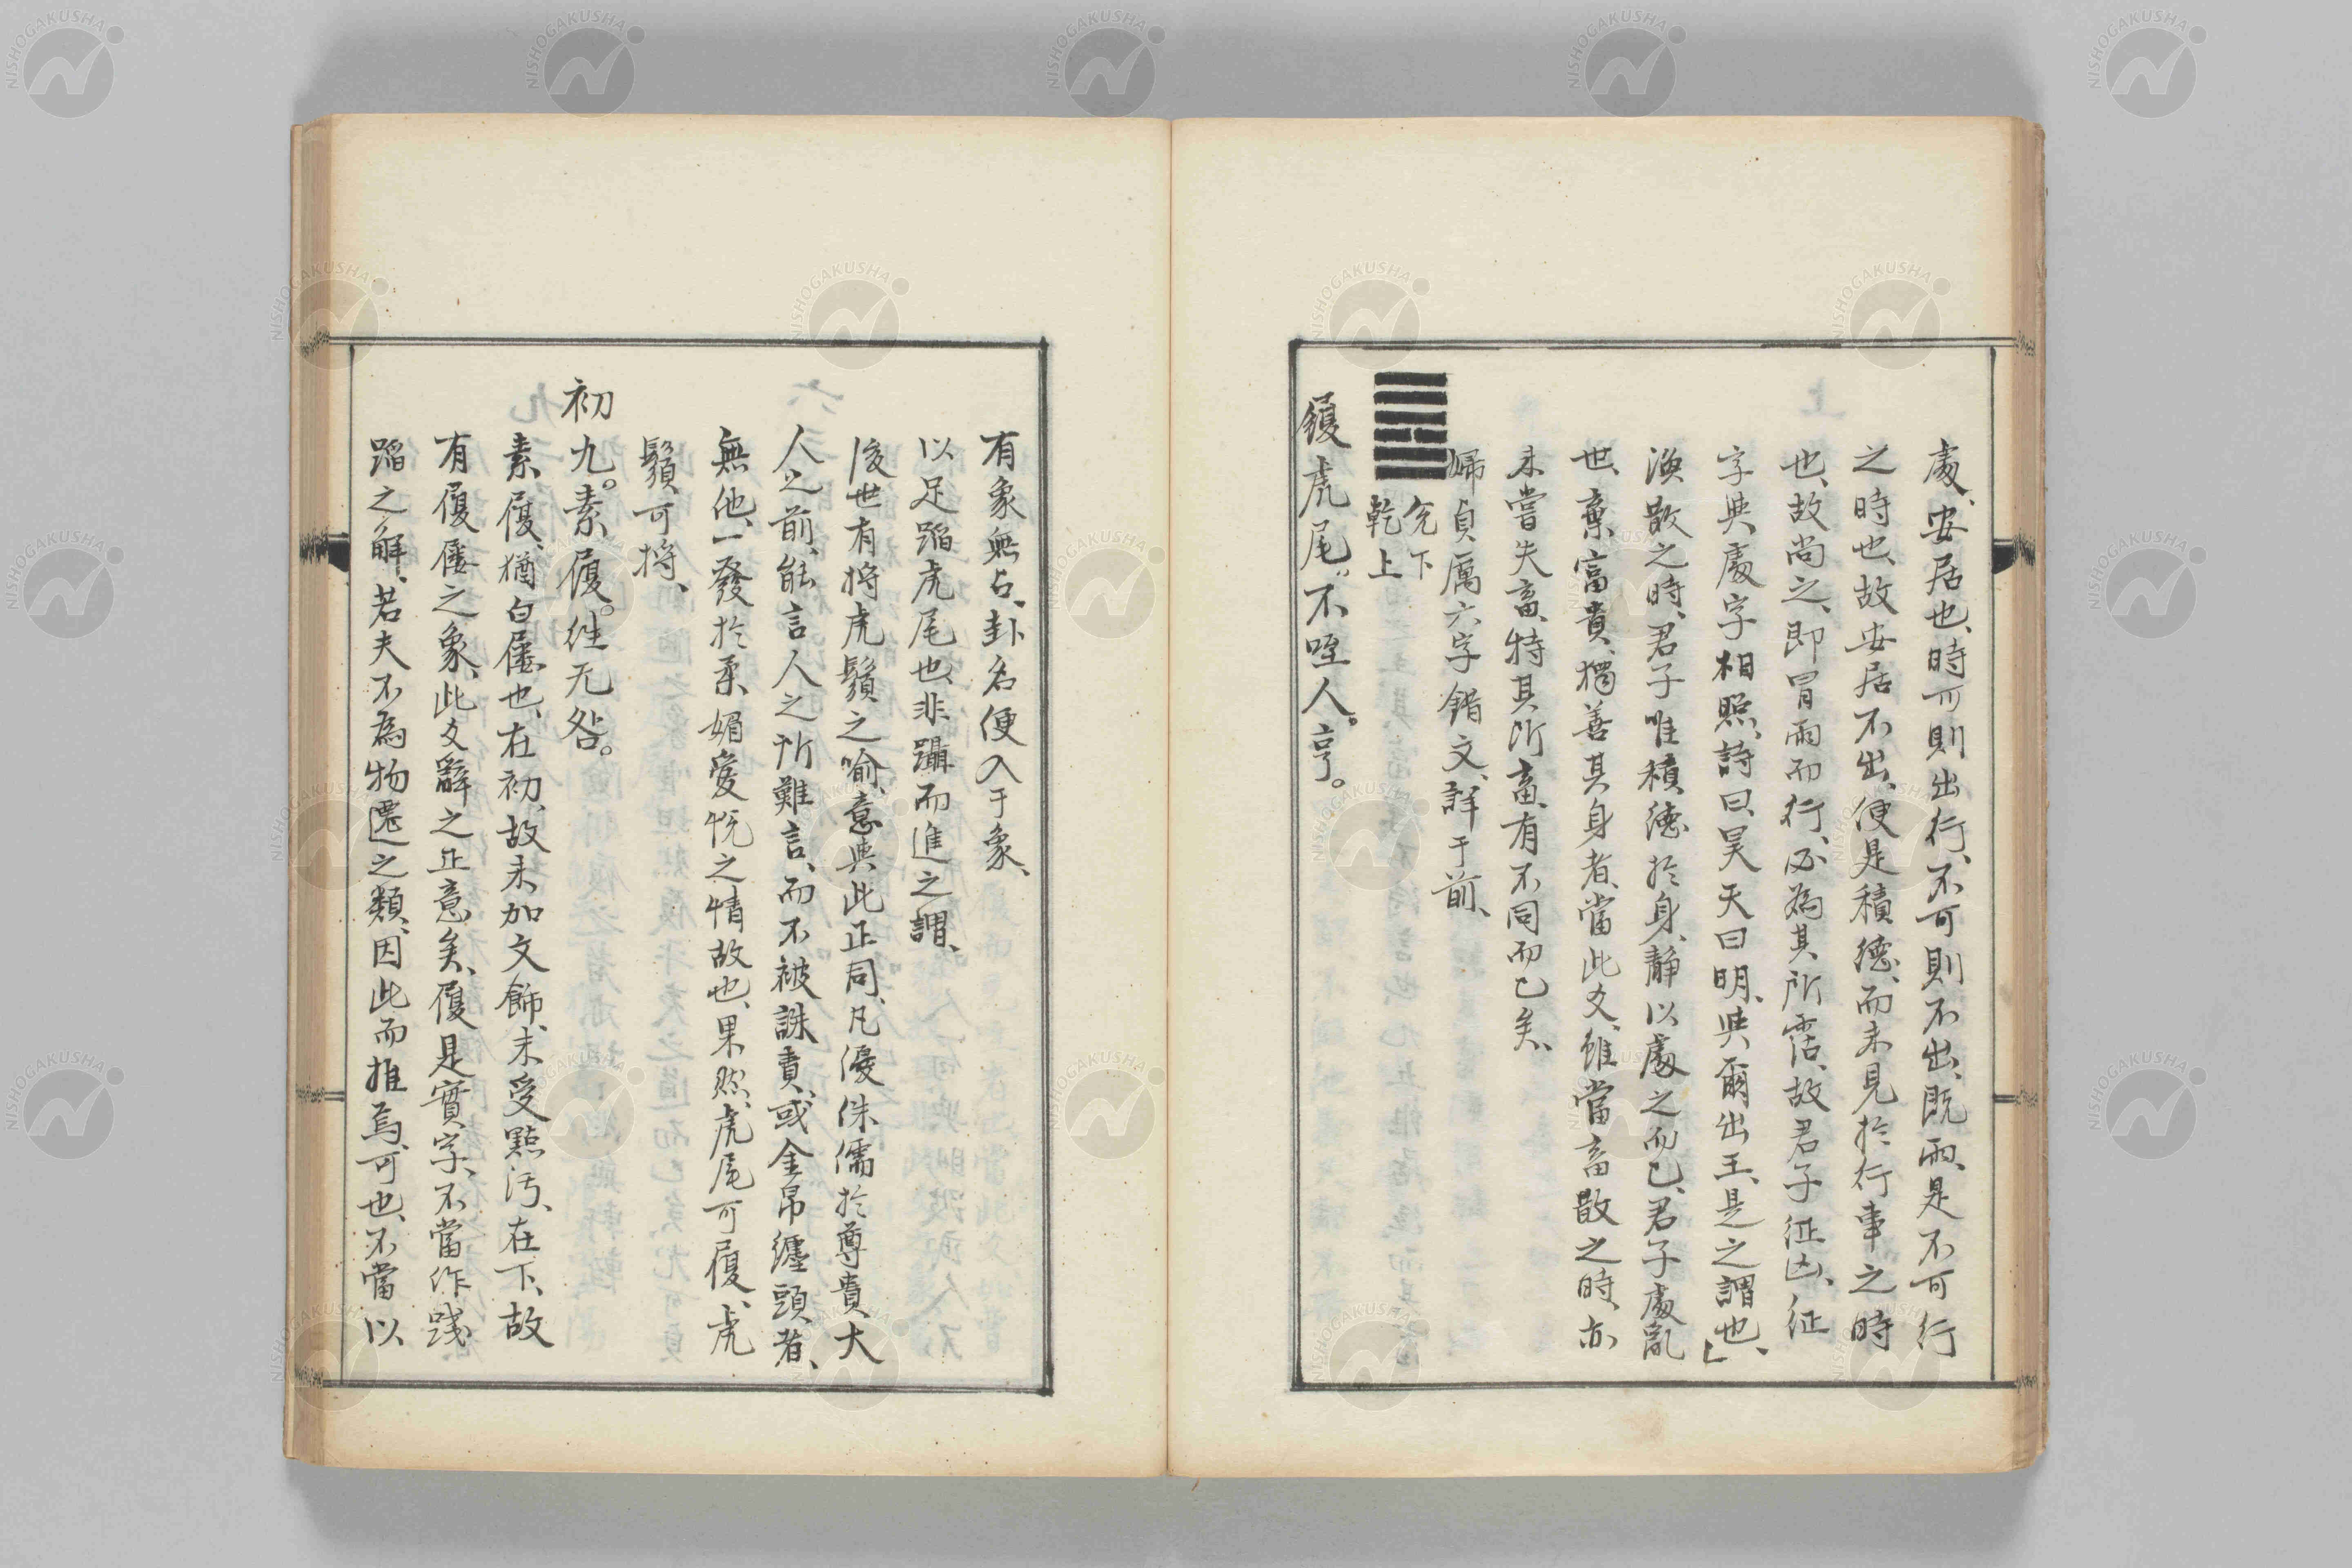 處、安居也、時可則出行、不可則不出、既雨、是不可行
之時也、故安居不出、便是積德、而未見於行事之時
也、故尚之、即冒雨而行、必為其所霑、故君子征凶、征
字與處字相照、詩曰、昊天曰明、與爾出王、是之謂也、」
渙散之時、君子唯積德於身、靜以處之而已、君子處亂
世、棄富貴、獨善其身者、當此爻、雖當畜散之時、亦
未嘗失畜、特其所畜、有不同而已矣、
婦貞厲六字錯文、詳于前、
兌下
乾上
履虎尾。不咥人。亨。
有象無占、卦名便入于象、
以足蹈虎尾也、非躡而進之謂、
後世有捋虎鬚之喻、意與此正同、凡優侏儒於尊貴大
人之前、能言人之所難言、而不被誅責、或金帛纏頭者、
無他、一發於柔媚愛悅之情故也、果然、虎尾可履、虎
鬚可捋、
初九。素履。往无咎。
素履、猶白屨也、在初、故未加文飾、未受點汚、在下、故
有履屨之象、此爻辭之正意矣、履是實字、不當作踐
蹈之解、若夫不為物遷之類、因此而推焉、可也、不當以
NISHOGAKUSHA